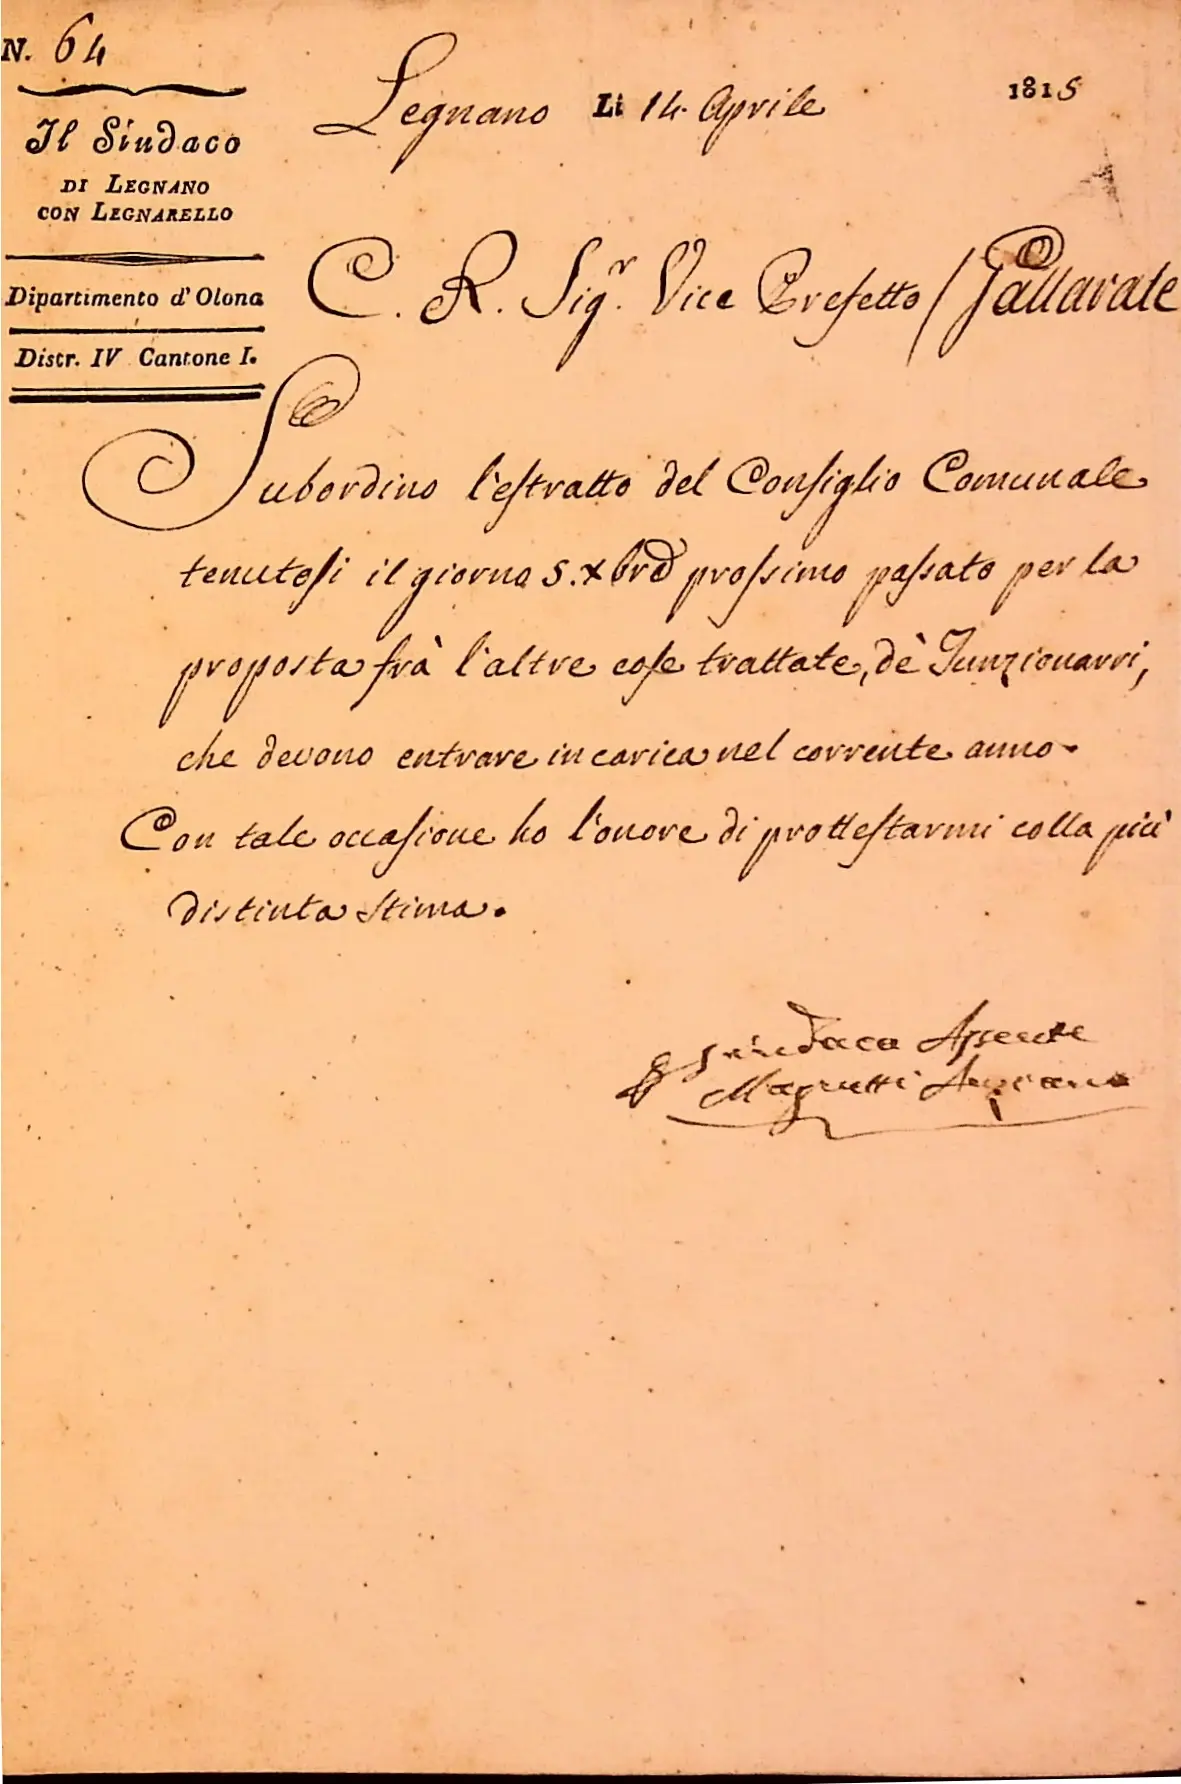 N. 64
Il Sindaco
DI LEGNANO
CON LEGNARELLO
Dipartimento d' Olona
Distr. IV Cantone I.
Legnano Li 14. Aprile 1815
C. R. Sig.r Vice Prefetto / Gallarate
Subordino l'estratto del Consiglio Comunale
tenutosi il giorno 5. Xbre prossimo passato per la
proposta frà l'altre cose trattate, dè Funzionarri,
che devono entrare in carica nel corrente anno.
Con tale occasione ho l'onore di prottestarmi colla più
distinta stima.
Sindaco Assente
Anziano